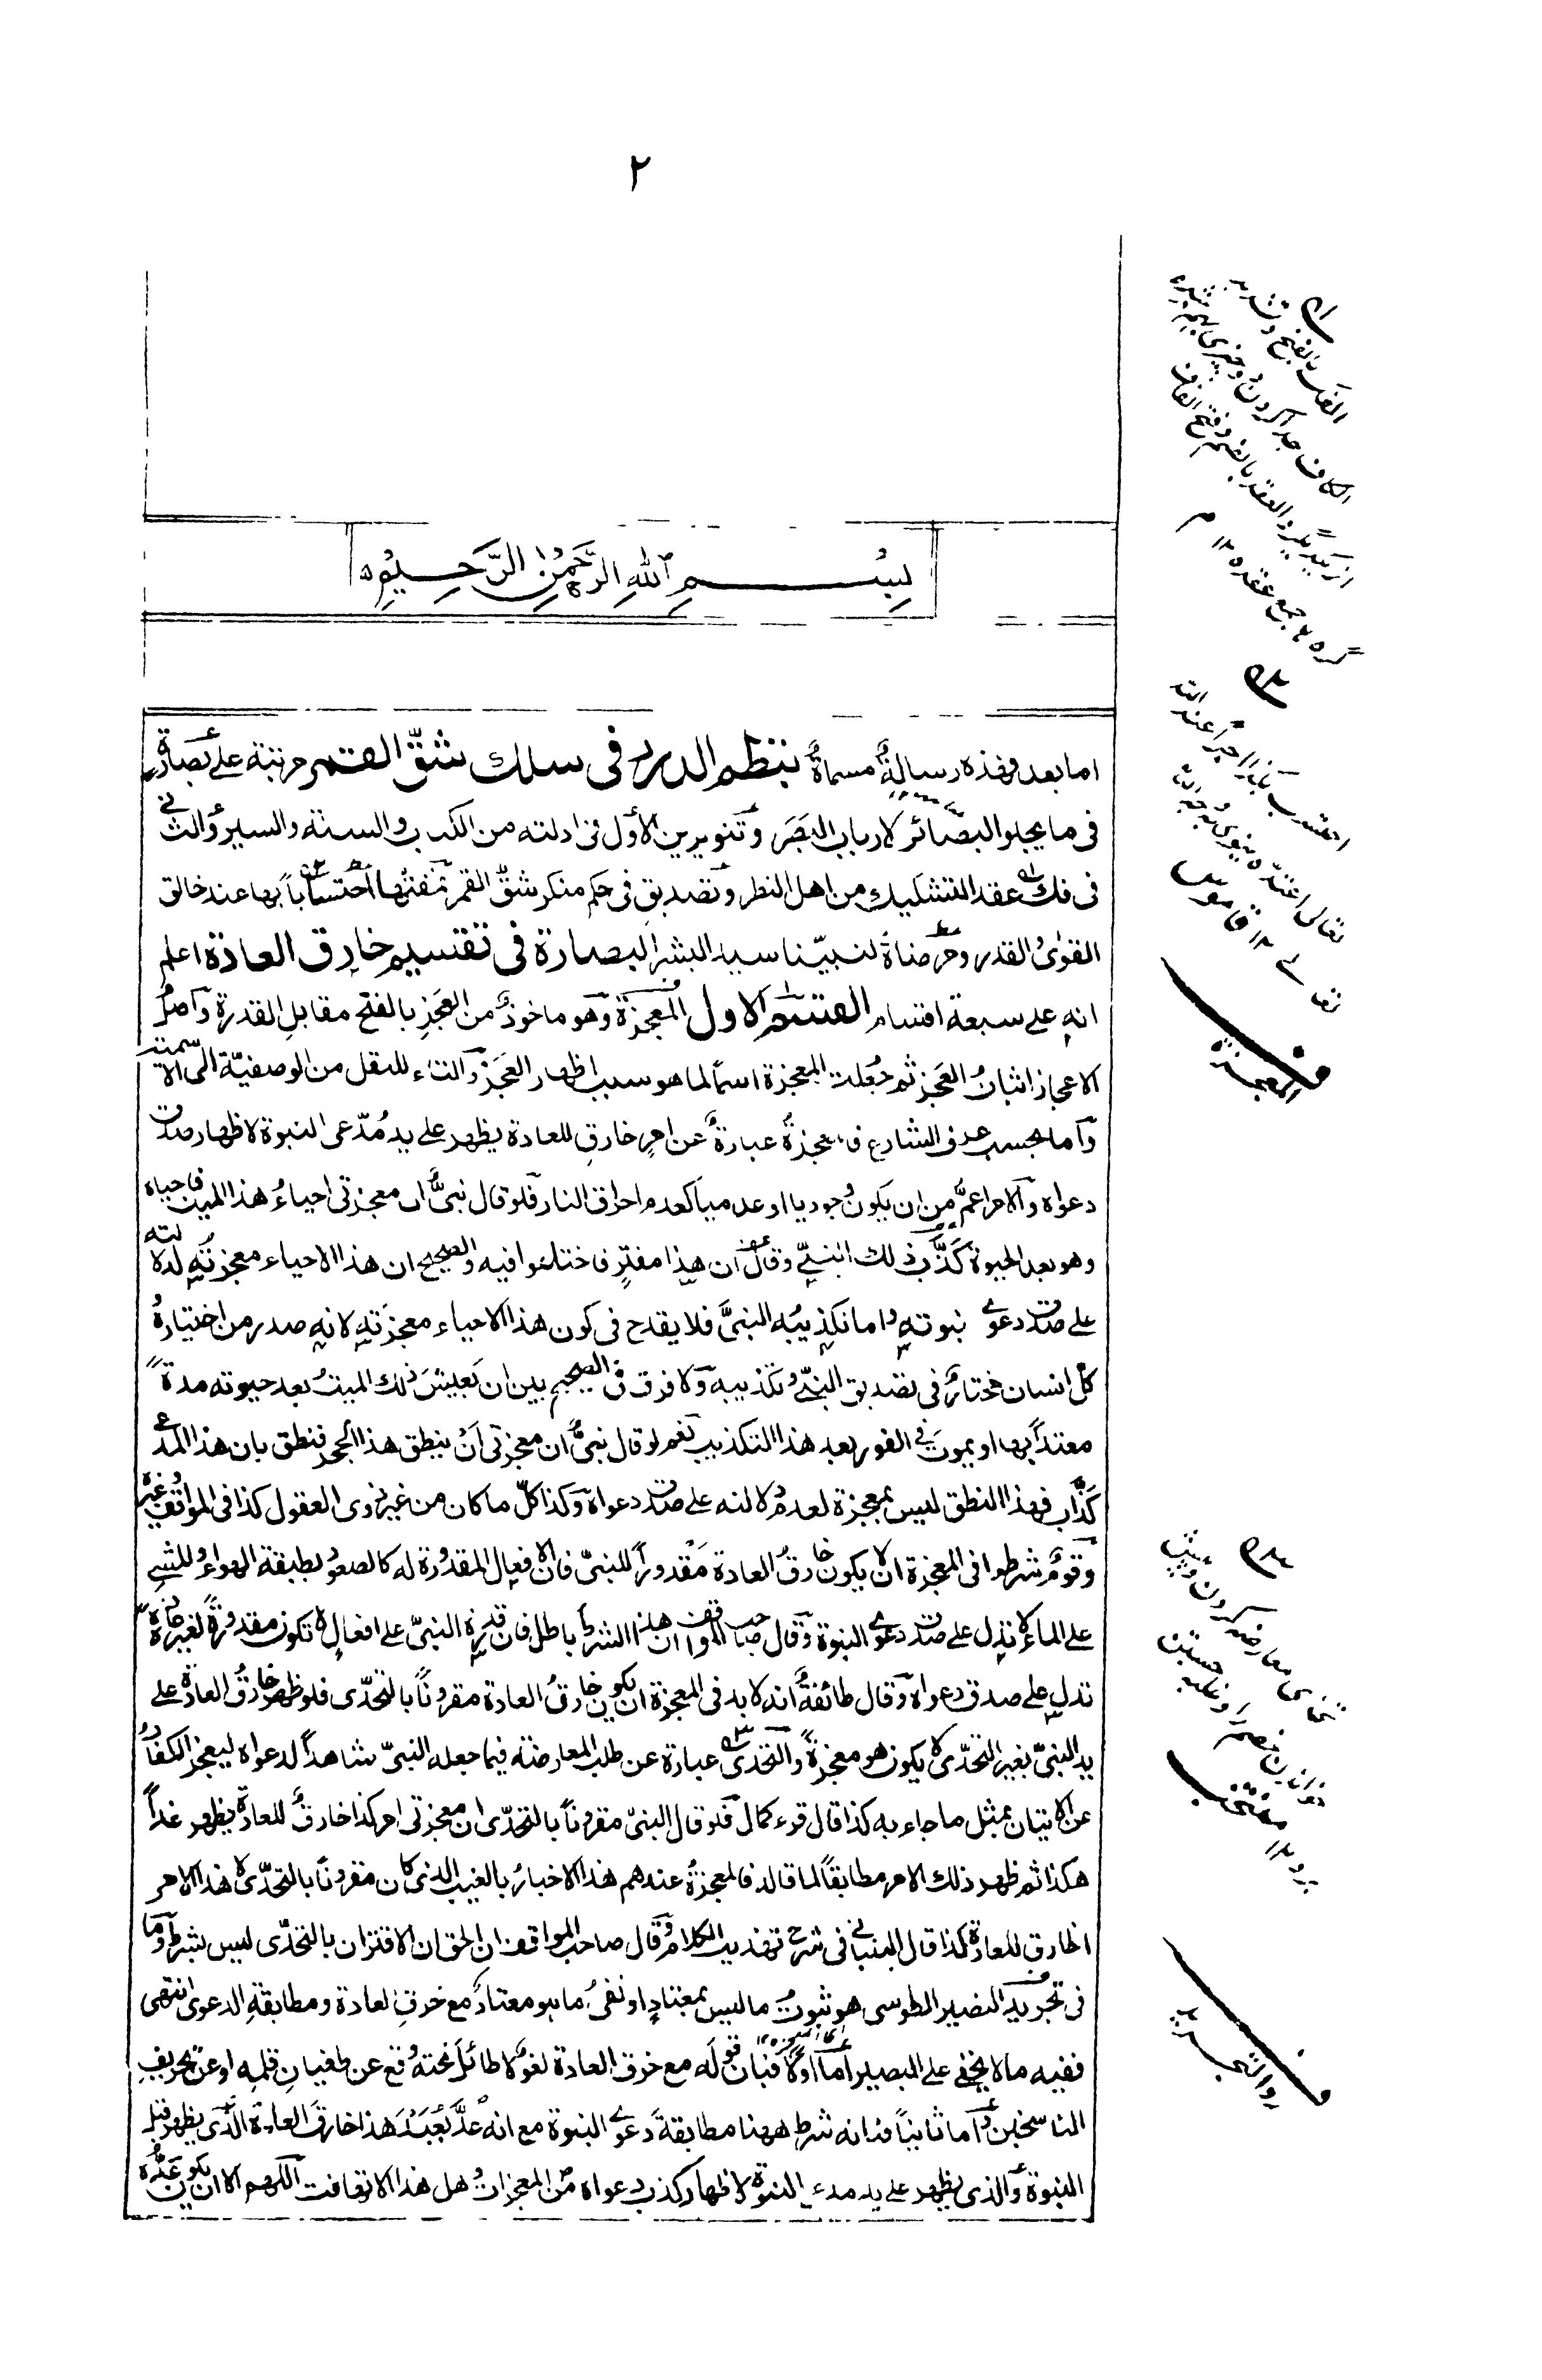 ٢
بسم الله الرحمن الرحيم
اما بعد فهذه رسالةٌ مسماةٌ بنظم الدرر فى سلك شقّ القمر مرتبة على بصارة
فى ما يجلو البصائر لارباب البَصَر وتنويرين الأوّل فى ادلته من الكتاب والسنة والسير والثانى
فى فك عقد التشكيك من اهل النظر وتصديق فى حكم منكر شقّ القمر نمقتها احتساباً بها عند خالق
القوىٰ والقدر ومرضاةً لنبيّنا سيد البشر البصارة فى تقسيم خارق العادة اعلم
انه على سبعة اقسام القسم الاول المعجزة وهو ماخوذٌ من العَجزِ بالفتح مقابلِ القدرة واصلُ
الاعجاز اثباتُ العَجز ثم جُعلت المعجزة اسمًا لما هو سبب اظهار العَجز والتاء للنقل من الوصفيّة الى الاسمية
واما بحسب عرف الشارع فالمعجزةُ عبارةٌ عن امرٍ خارقٍ للعادة يظهر على يد مُدّعى النبوة لاظهار صدق
دعواه والامر اعمُّ من ان يكون وجوديا او عدمياً كعدم احراق النار فلو قال نبىٌّ ان معجزتى احياءُ هذا الميت فاحياه
وهو بعد الحيوة كَذَّب ذلك النبىّ وقال ان هذا مفترٍ فاختلفوا فيه والصحيح ان هذا الاحياء معجزتُه لدلالته
على صدق دعوى نبوته واما تكذيبُه النبىَّ فلا يقدح فى كون هذا الاحياء معجزتَه لانه صدر من اختياره
كل انسان مختارٌ فى تصديق النبىّ وتكذيبه ولا فرق فى الصحيح بين ان يَعيشَ ذلك الميتُ بعد حيوته مدةً
معتداً بها او يموتَ فى الفور بعد هذا التكذيب نعم لو قال نبىٌّ ان معجزتى اَنْ ينطق هذا الحجر فنطق بان هذا المدعى
كذّاب فهذا النطق ليس بمعجزة لعدم دلالته على صدق دعواه وكذا كلّ ما كان من غير ذوى العقول كذا فى المواقف وغيره
وقومٌ شرطوا فى المعجزة ان لا يكون خارقُ العادة مَقْدوراً للنبىّ فان الافعال المقدورة له كالصعود بطبقة الهواء والمشى
على الماء لا تدل على صدق دعوى النبوة وقال صاحب المواقف ان هذا الشرط باطل فان قدرة النبىّ على افعالٍ لا تكون مقدورةً لغيره
تدل على صدق دعواه وقال طائفةٌ انه لا بد فى المعجزة ان يكون خارقُ العادة مقروناً بالتحدّى فلو ظهر خارقُ العادة على
يد النبىّ بغير التحدّى لا يكون هو معجزةً والتحدى عبارة عن طلب المعارضة فيما جعله النبىّ شاهداً لدعواه ليعجز الكفار
عن الاتيان بمثل ما جاء به كذا قال قره كمال فلو قال النبىّ مقروناً بالتحدّى ان معجزتى امر كذا خارقٌ للعادة يظهر غداً
هكذا ثم ظهر ذلك الامر مطابقاً لما قاله فالمعجزةُ عندهم هذا الاخبارُ بالغيب الذى كان مقروناً بالتحدّى لا هذا الامر
الخارق للعادة كذا قال البنبانى فى شرح تهذيب الكلام وقال صاحب المواقف ان الحق ان الاقتران بالتحدّى ليس بشرط وما
فى تجريد النصير الطوسى هو ثبوتُ ما ليس بمعتادٍ او نفىُ ما هو معتادٌ مع خرقِ العادة ومطابقةِ الدعوى انتهى
ففيه ما لا يخفى على البصير اما اوّلًا فبان قوله مع خرق العادة لغوٌ لا طائل تحته وقع عن طغيان قلمه او عن تحريف
الناسخين واما ثانياً فانه شرط ههنا مطابقةَ دعوى النبوة مع انه عدَّ بُعَيْدَ هذا خارقَ العادة الذى يظهر قبل
النبوة والذى يظهر على يد مدعى النبوة لاظهار كذب دعواه من المعجزات وهل هذا الا تهافت اللهم الا ان يكون عدُّه
الفك بالفتح وتشديد
الكاف جدا کردن دو چیزی
از یکدیگر والعقد بالضم وفتح القاف
گره ها جمع عقده ١٢ م
احتسب بكذا اجرًا عند الله
تعالى اعتدّه ينوى به وجه الله
تعالى ١٢ قاموس
المعجزة
تحدى معارضه کردن و پیش
خواندن خصم را و غلبه جستن
برو ١٢ منتخب
والتجريد